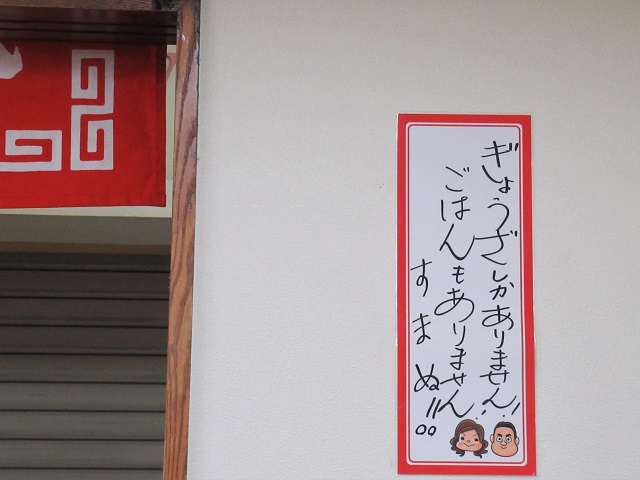 ぎょうざしかありません!!
ごはんもありません!!
すまぬ!!